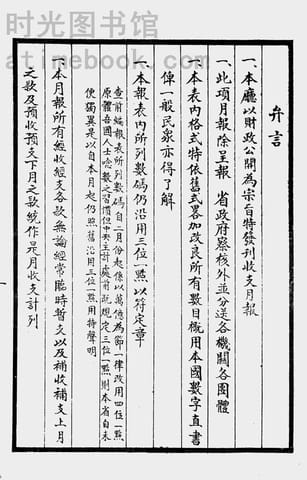 时光图书馆
弁言
一、本廳以財政公開為宗旨特發刊收支月報
一、此項月報除呈報　省政府察核外並分送各機關各團體
一、本表內格式特依舊式畧加改良所有數目概用本國數字直書
俾一般民衆亦得了解
一、本報表內所列數碼仍沿用三位一點以符定章
查前編報表所列數碼自二月份起係以萬億為節一律改用四位一點
原體吾國人士唸數之習慣但中央主計處前既規定三位一點則本省自未
便獨異是以自本月起仍照舊沿用三位一點用特聲明
一、本月報所有經收經支各款無論經常臨時暫支以及補收補支上月
之款及預收預支下月之款統作是月收支計列